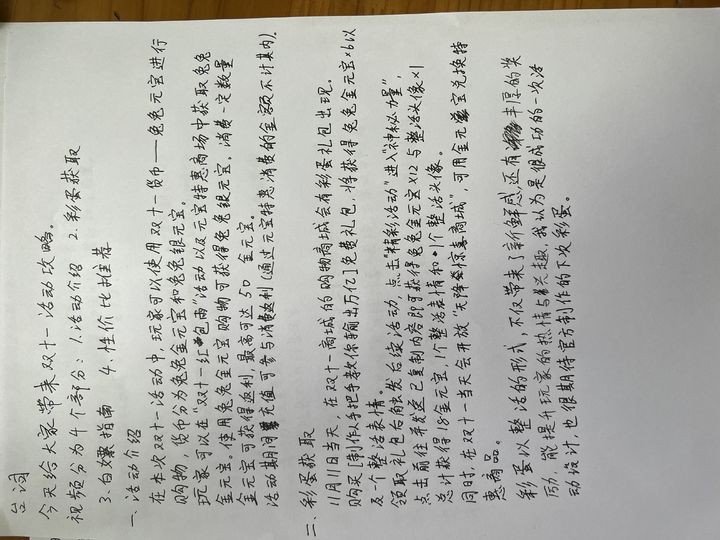 台词
今天给大家带来双十一活动攻略。
视频分为4个部分：1.活动介绍 2.彩蛋获取
3.白嫖指南 4.性价比推荐
一、活动介绍
在本次双十一活动中，玩家可以使用双十一货币——兔兔元宝进行
购物，货币分为兔兔金元宝和兔兔银元宝。
玩家可以在“双十一红包雨”活动以及元宝特惠商场中获取兔兔
金元宝。使用兔兔金元宝购物可获得兔兔银元宝，消费一定数量
金元宝可获得返利，最高可达50金元宝。
活动期间充值可参与消费返利（通过元宝特惠消费的金额不计其内）。
二、彩蛋获取
11月11日当天，在双十一商城的购物商城会有彩蛋礼包出现。
购买[制作人手把手教你输出万亿]免费礼包，将获得兔兔金元宝×6以
及一个整活表情。
领取礼包后触发后续活动，点击“精彩活动”进入“神秘力量”，
点击前往并发送已复制内容即可获得兔兔金元宝×12与整活头像×1
总计获得18金元宝，1个整活表情和1个整活头像。
同时，在双十一当天会开放“天降惊喜商城”，可用金元宝兑换特
惠商品。
彩蛋以整活的形式，不仅带来了新鲜感还有丰厚的奖
励，能提升玩家的热情与兴趣，我认为是很成功的一次活
动设计，也很期待官方制作的下次彩蛋。